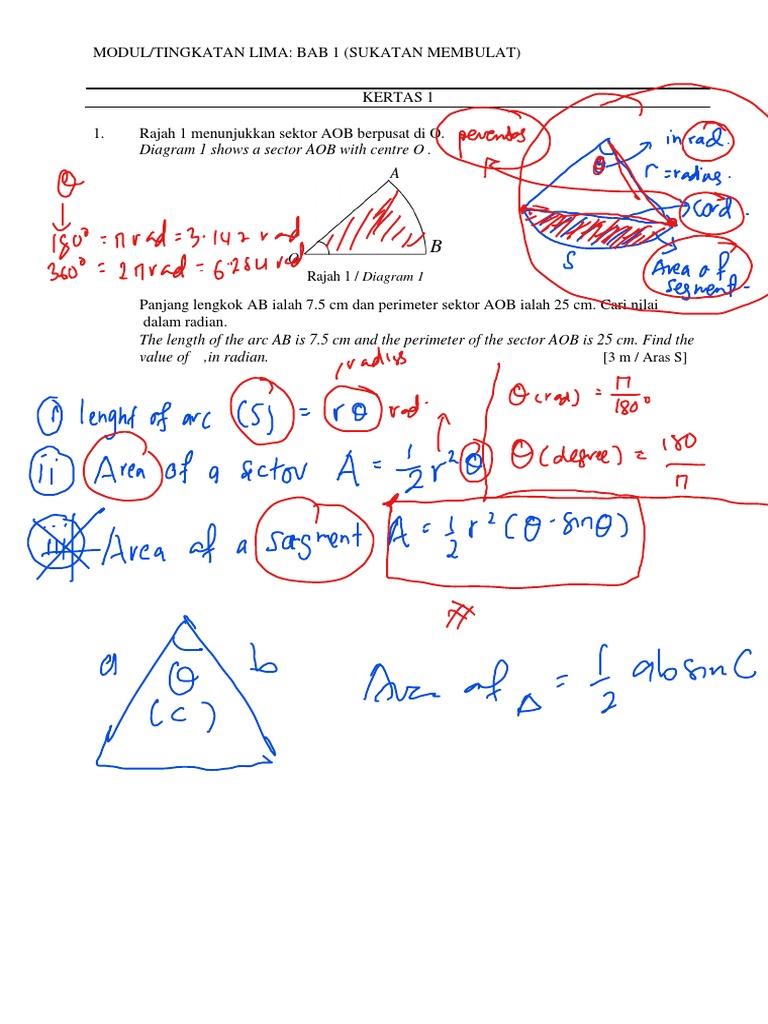 MODUL/TINGKATAN LIMA: BAB 1 (SUKATAN MEMBULAT)
KERTAS 1
1. Rajah 1 menunjukkan sektor AOB berpusat di O.
Diagram 1 shows a sector AOB with centre O .
in rad.
θ
r = radius.
cord.
S
Area of
segment
θ
180° = π rad = 3.142 rad
360° = 2π rad = 6.284 rad
A
O
B
Rajah 1 / Diagram 1
Panjang lengkok AB ialah 7.5 cm dan perimeter sektor AOB ialah 25 cm. Cari nilai
dalam radian.
The length of the arc AB is 7.5 cm and the perimeter of the sector AOB is 25 cm. Find the
value of ,in radian. [3 m / Aras S]
radius
i) lenght of arc (S) = rθ rad.
θ(rad) = π/180°
ii) Area of a sector A = 1/2 r²θ
θ(degree) = 180/π
iii) Area of a segment A = 1/2 r²(θ - sinθ)
#
a
b
θ
(c)
Area of Δ = 1/2 ab sin C